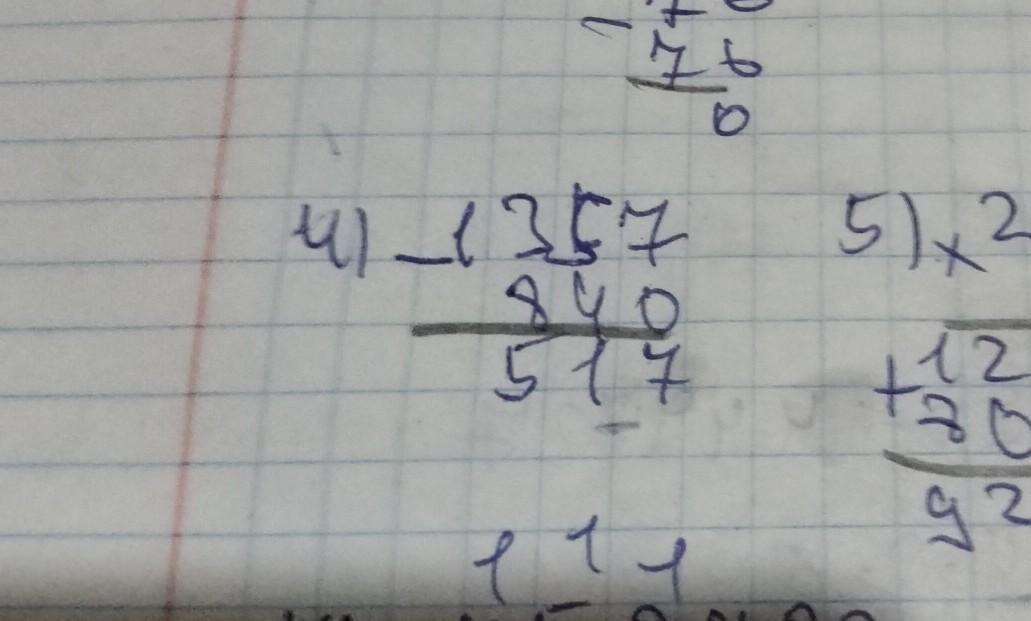 76
0
4) - 1357
840
517
5) x 2
+ 12
80
92
1 1 1